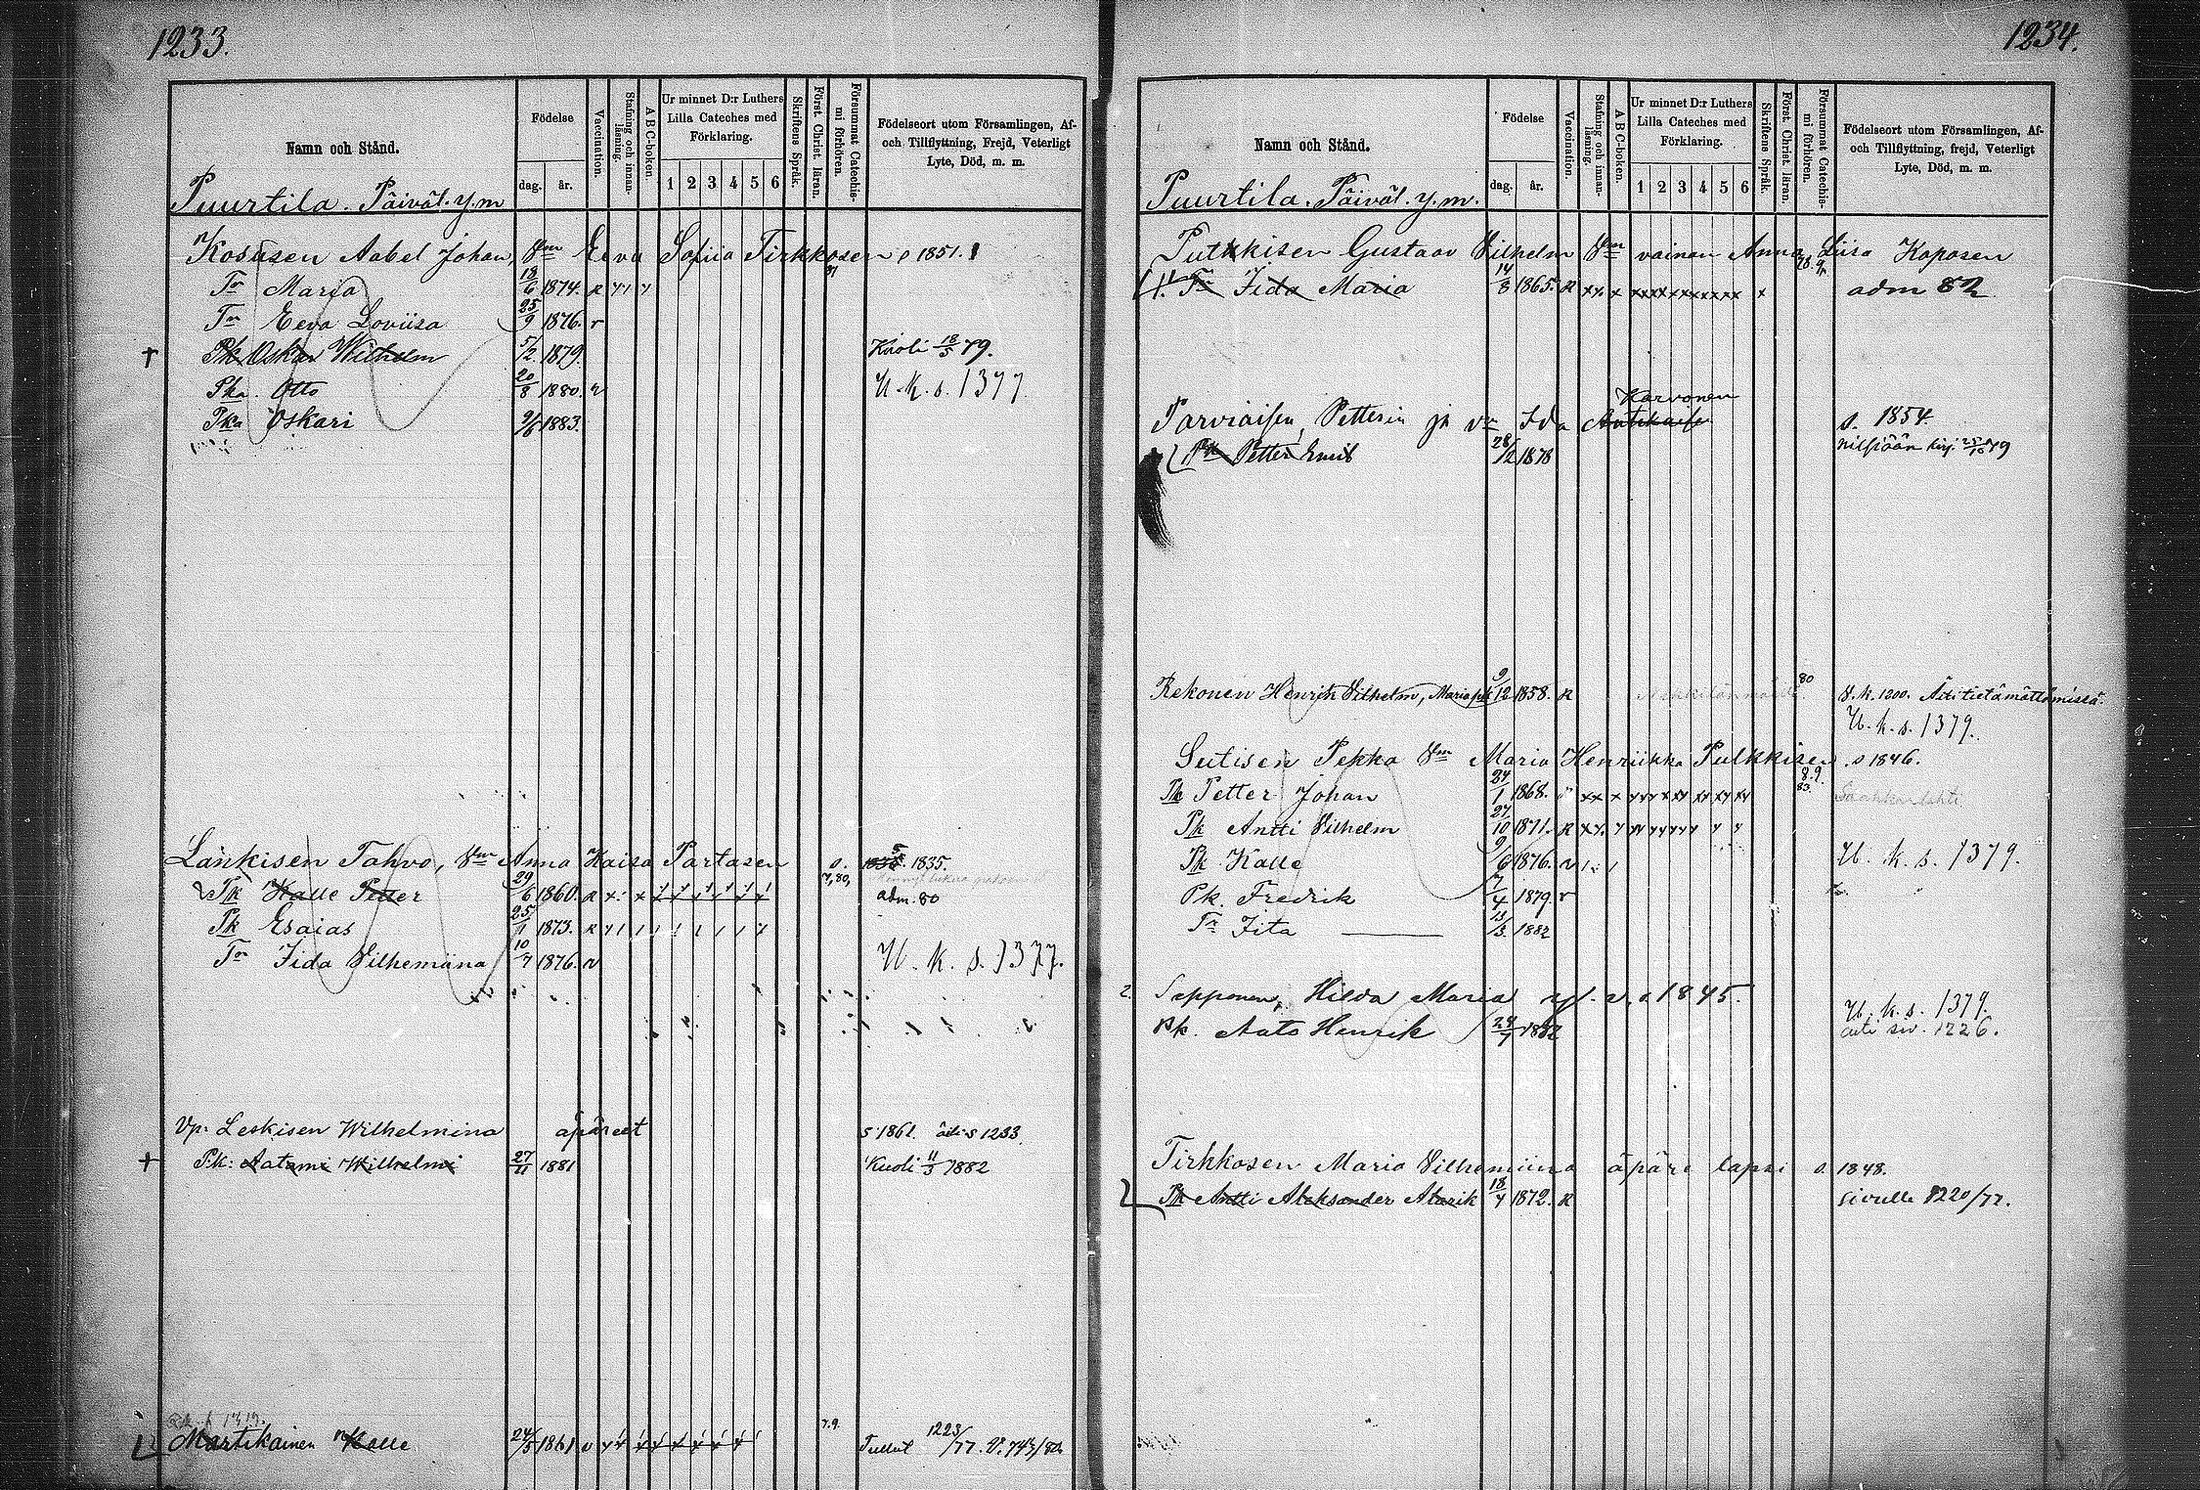 1233.
Namn och Stånd.
Födelse
dag. år.
Vaccination.
Stafning och innanläsning.
A B C-boken.
Ur minnet D:r Luthers Lilla Cateches med Förklaring.
1 2 3 4 5 6
Skriftens Språk.
Först. Christ. läran.
Försummat Catechismi förhören.
Födelseort utom Församlingen, Af- och Tillflyttning, Frejd, Veterligt Lyte, Död, m. m.
Puurtila. Päiväl. y. m
Kososen Aabel Johan, Vm Eeva Sofiia Tirkkosen s 1851.
Tr Maria 18/6 1874. R
Tr Eeva Loviisa 25/9 1876. r
† Pk Oskar Wilhelm 5/2 1879. Kuoli 18/5 79.
Pka. Otto 20/8 1880. U. k. s. 1377
Pka Oskari 9/6 1883.
Länkisen Tahvo, Vm Anna Kaisa Partasen s. 1835.
Pk Kalle Petter 29/6 1860. R 7, 80, adm. 80
Pk Esaias 25/11 1873. R
Tr Iida Vilhemiina 10/7 1876. U. k. s. 1377.
Vp: Leskisen Wilhelmina äpäreet s. 1861. äiti s 1233.
† Pk: Aatami Wilhelmi 27/11 1881 Kuoli 11/3 1882
Martikainen Kalle 24/5 1861 7.9. Tullut 1223/77. V. 743/82
1234.
Namn och Stånd.
Födelse
dag. år.
Vaccination.
Stafning och innanläsning.
A B C-boken.
Ur minnet D:r Luthers Lilla Cateches med Förklaring.
1 2 3 4 5 6
Skriftens Språk.
Först. Christ. läran.
Försummat Catechismi förhören.
Födelseort utom Församlingen, Af- och Tillflyttning, frejd, Veterligt Lyte, Död, m. m.
Puurtila. Päiväl. y. m.
Putkkisen Gustaav Vilhelm Vm vainan Anna Liisa Koposen
Tr Iida Maria 14/8 1865. R adm 82
Karvonen
Parviaisen, Petterin ja vm Ida s. 1854.
Pk Petter Emil 28/2 1878 Nilsiään kirj. 79
Rekonen Henrik Vilhelm, Maria pk 9/12 1858. R 80 V. k. 1200. Äiti tietämättömissä.
U. k. s. 1379.
Sutisen Pekka Vm Maria Henriikka Pulkkisen. s 1846.
Pk Petter Johan 24/1 1868. 8.9. 83.
Pk Antti Vilhelm 27/10 1871. R
Pk Kalle 9/6 1876. U. k. s. 1379.
Pk. Fredrik 7/4 1879. r
Tr Iita 13/3 1882
2. Sepponen, Hilda Maria s. 1845. U. k. s. 1379.
Pk. Aato Henrik 24/7 1882 äiti siv. 1226.
Tirkkosen Maria Vilhemiina äpäre lapsi s. 1848.
Pk Antti Aleksander Alarik 18/4 1872. R sivulle 1220/77.